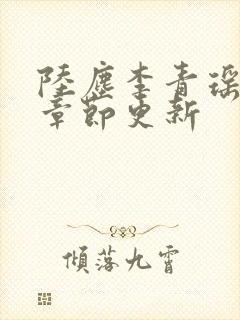 陸塵李青瑶
章節更新
傾落九霄